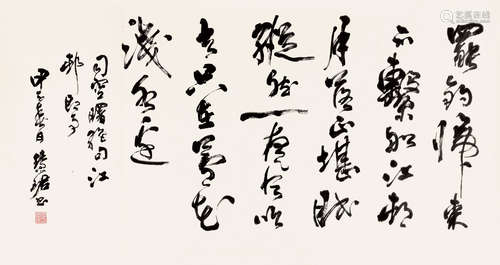 罷釣歸來
不繫船江邨
月落正堪眠
縱然一夜風吹
去只在蘆花
淺水邊
司空曙絕句江
邨即事
甲子